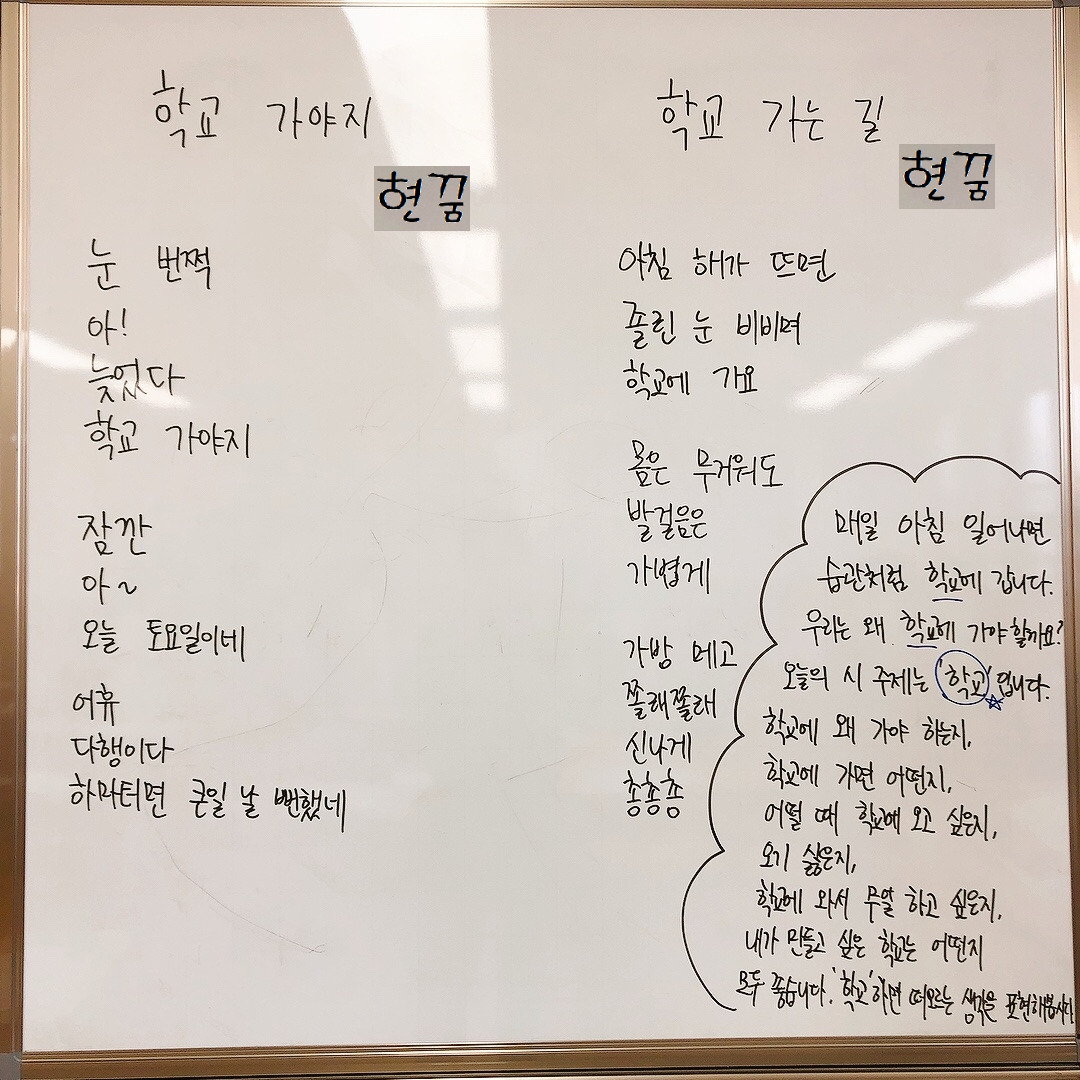 학교 가야지
현꿈
눈 번쩍
아!
늦었다
학교 가야지
잠깐
아~
오늘 토요일이네
어휴
다행이다
하마터면 큰일 날 뻔했네
학교 가는 길
현꿈
아침 해가 뜨면
졸린 눈 비비며
학교에 가요
몸은 무거워도
발걸음은
가볍게
가방 메고
쫄래쫄래
신나게
총총총
매일 아침 일어나면
습관처럼 학교에 갑니다.
우리는 왜 학교에 가야 할까요?
오늘의 시 주제는 '학교'입니다.
학교에 왜 가야 하는지,
학교에 가면 어떤지,
어떨 때 학교에 오고 싶은지,
오기 싫은지,
학교에 와서 무얼 하고 싶은지,
내가 만들고 싶은 학교는 어떤지
모두 좋습니다. '학교'하면 떠오르는 생각을 표현해봅시다